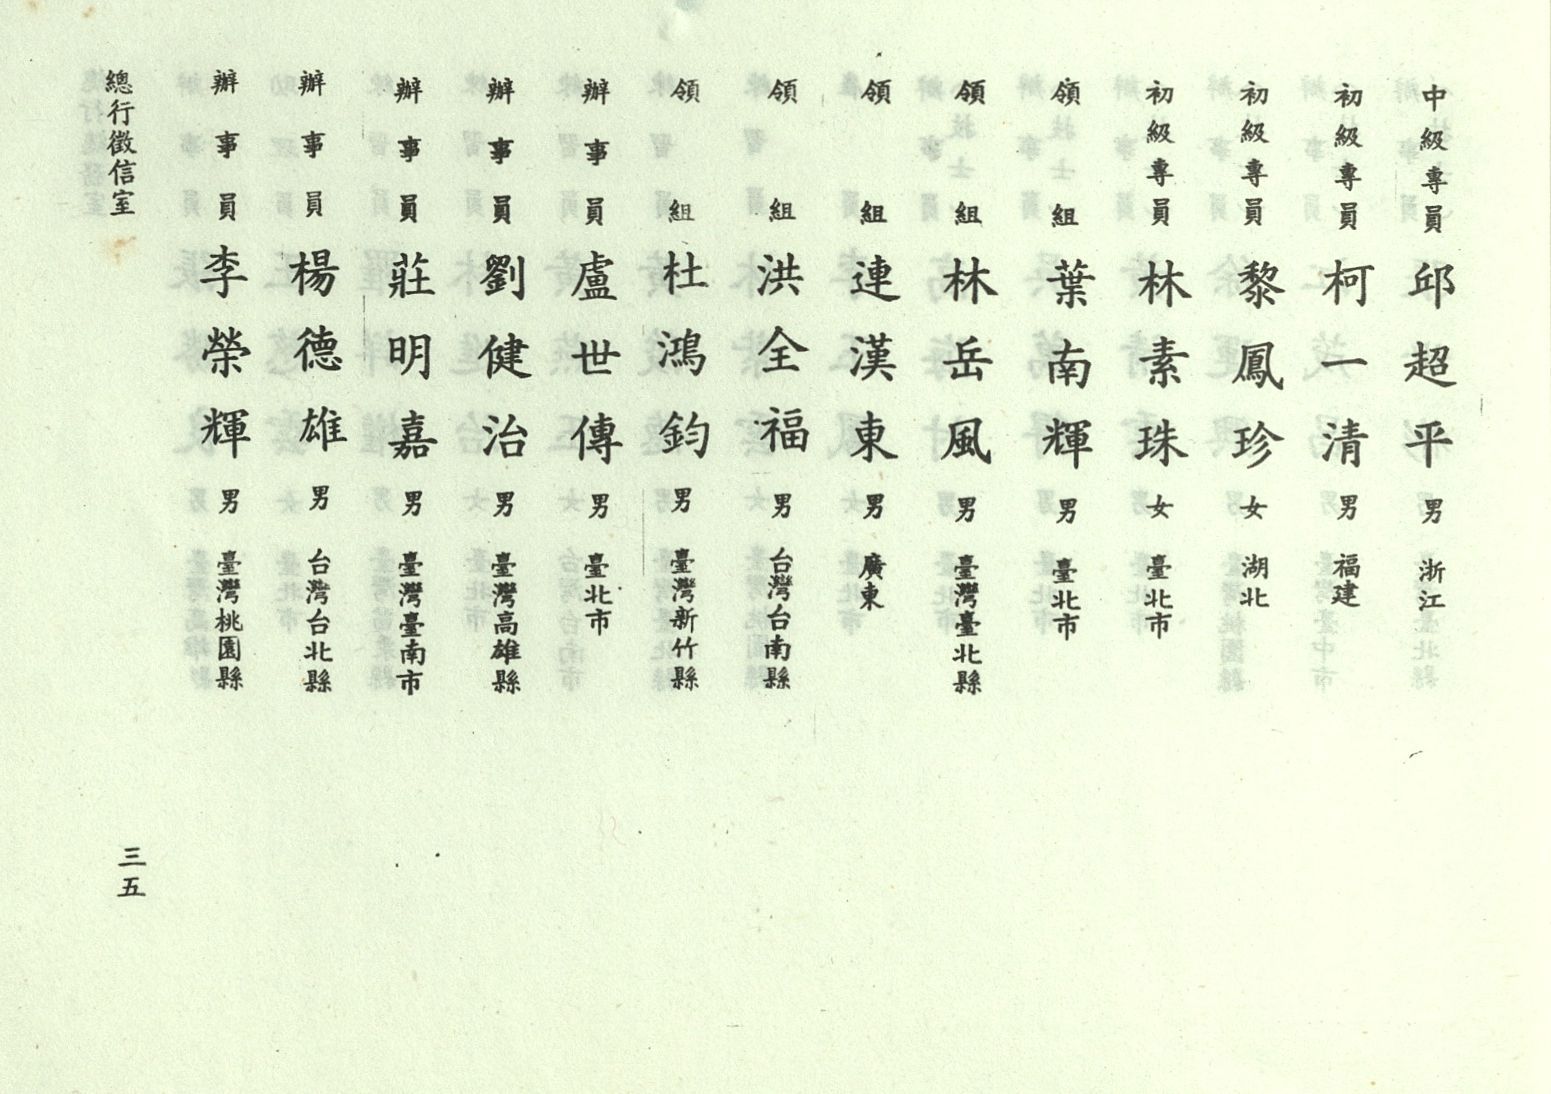 中級專員 邱超平 男 浙江
初級專員 柯一清 男 福建
初級專員 黎鳳珍 女 湖北
初級專員 林素珠 女 臺北市
領組 葉南輝 男 臺北市
領組 林岳風 男 臺灣臺北縣
領組 連漢東 男 廣東
領組 洪全福 男 台灣台南縣
領組 杜鴻鈞 男 臺灣新竹縣
辦事員 盧世傳 男 臺北市
辦事員 劉健治 男 臺灣高雄縣
辦事員 莊明嘉 男 臺灣臺南市
辦事員 楊德雄 男 台灣台北縣
辦事員 李榮輝 男 臺灣桃園縣
總行徵信室
三五